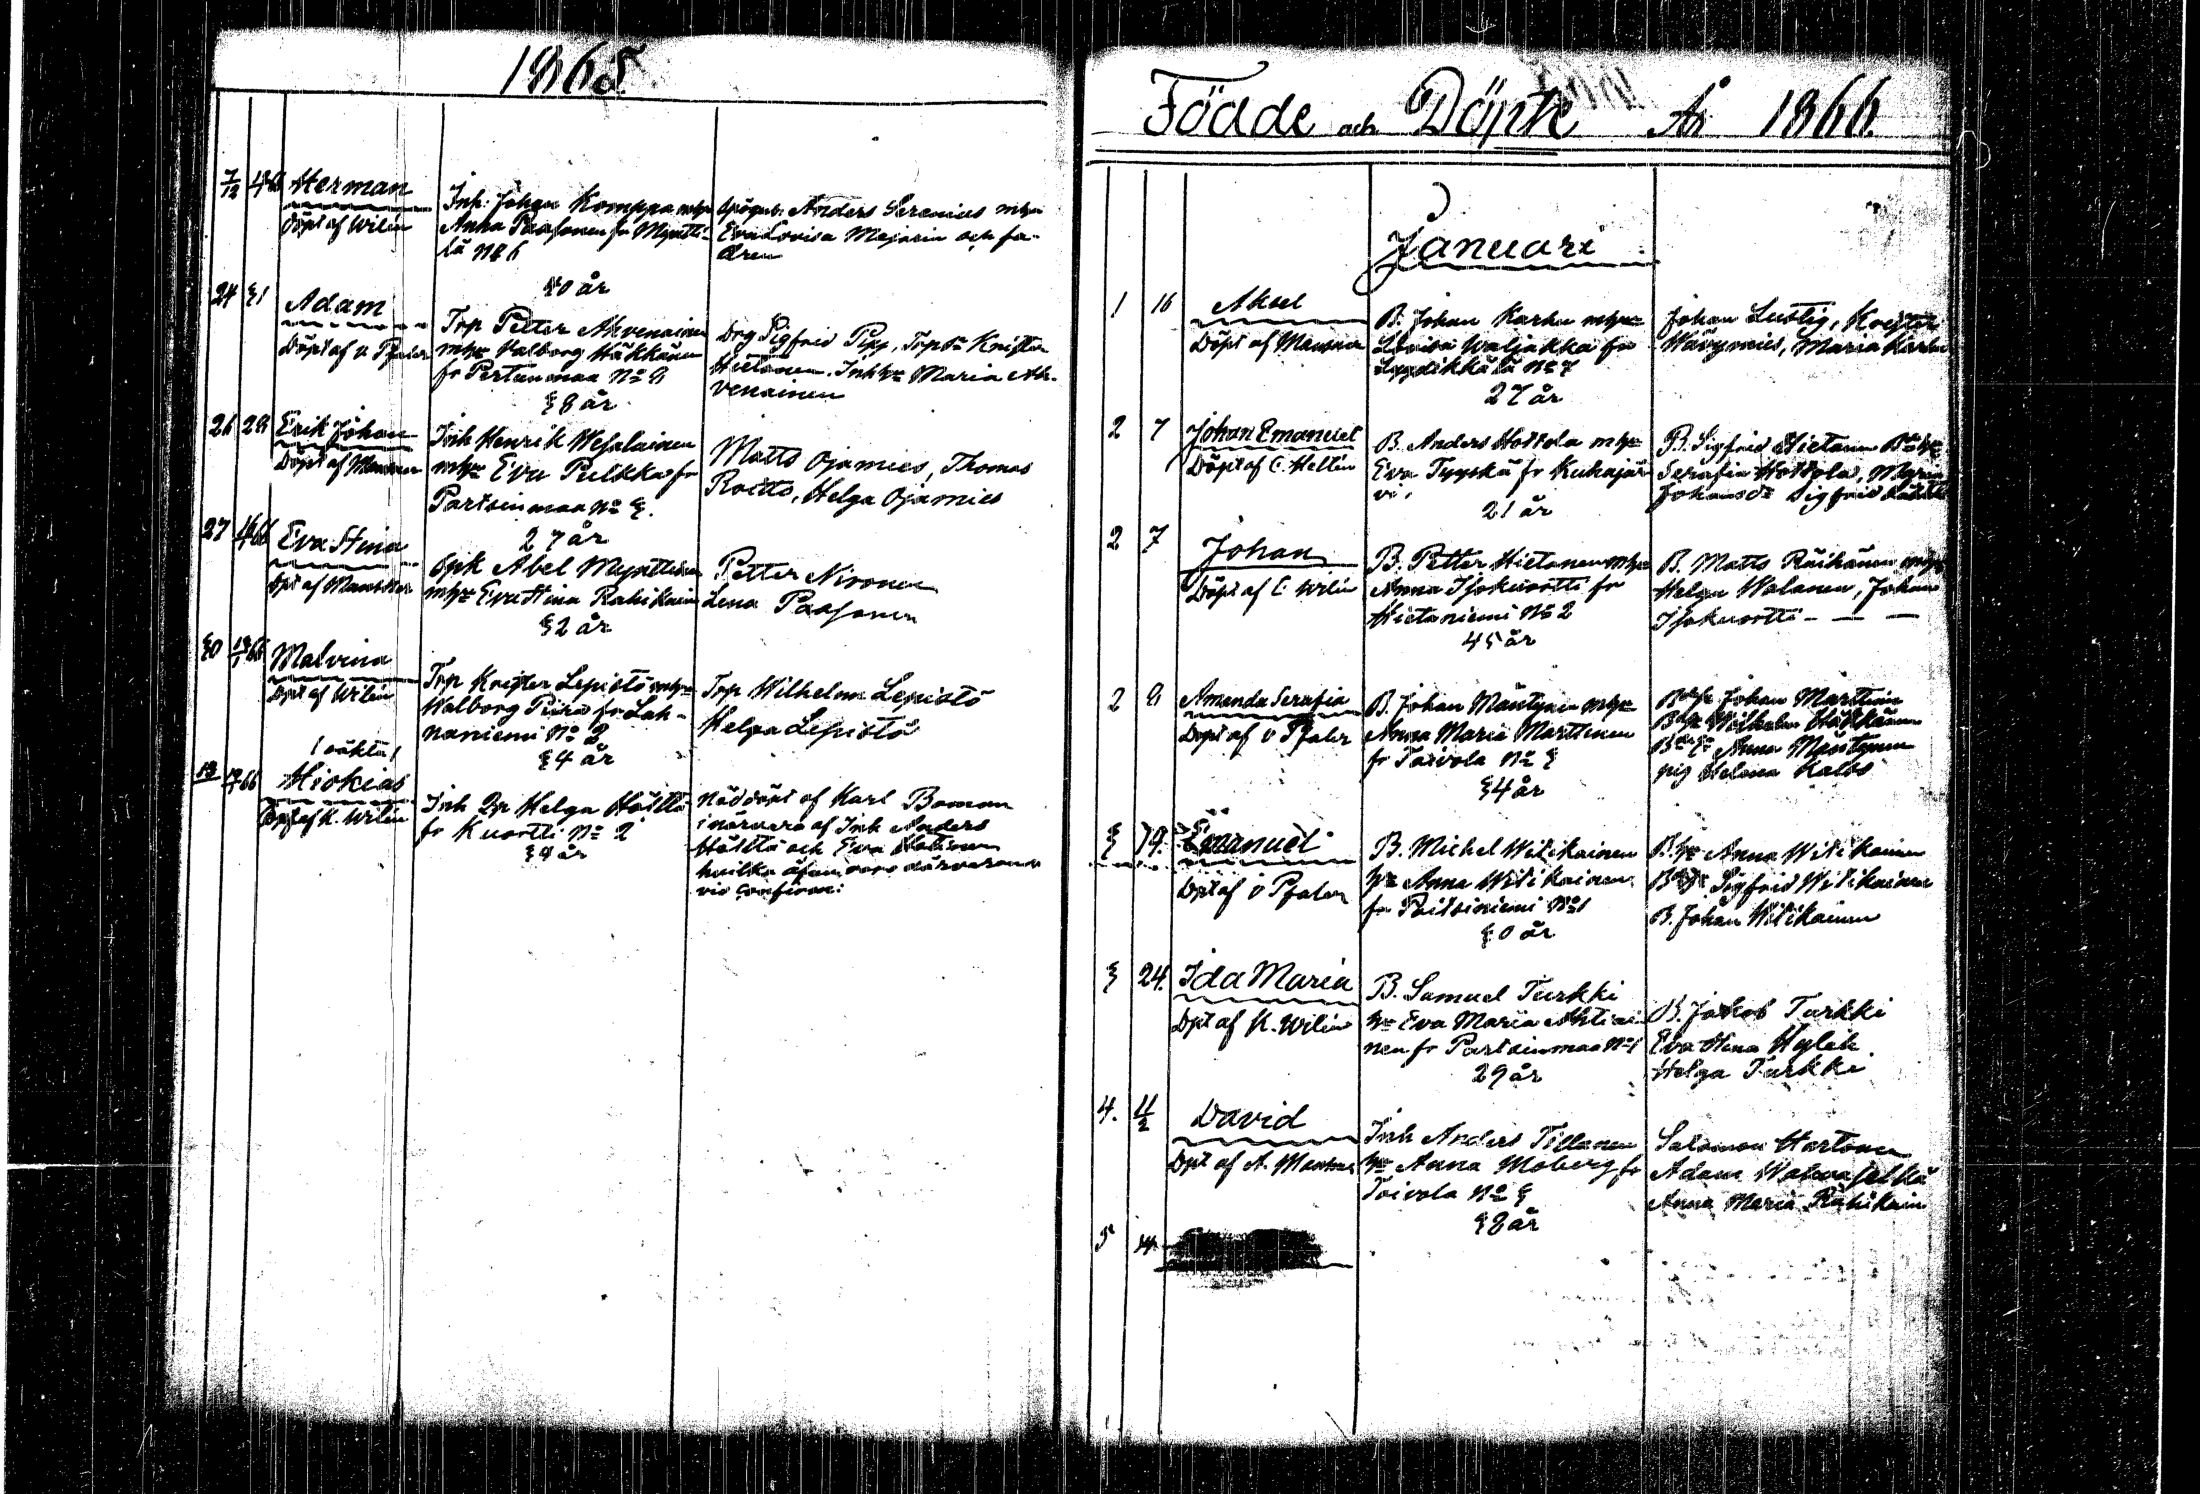 1865
7/12
Herman
Döpt af Wilén
Inh: Johan Komppa mhu
Anna Paasonen fr Myntti-
lä No 6
40 år
Anders Serenius mhu
Eva Lovisa Majorin och fa-
dren
24 31
Adam
Döpt af v Pfaler
Trp Petter Ahvenainen
mhu Valborg Häkkänen
fr Pertunmaa No 9
38 år
Drg Sigfrid Pipp, Krister
Hietanen, Maria Ah-
venainen
26 29
Erik Johan
Döpt af
Inh Henrik Wesalainen
mhu Eva Pulkka fr
Partsinmaa No 3.
27 år
Matts Ojamies, Thomas
Roitto, Helga Ojamies
27
Eva Stina
Dpt af
Abel Mynttinen
mhu Eva Stina Rahikain
32 år
Petter Nironen
Lena Paasonen
30
Malvina
Dpt af Wilén
Trp Krister Lepistö mhu
Walborg fr Lah-
naniemi No 2
34 år
Trp Wilhelm Lepistö
Helga Lepistö
/oäkta/
Hiskias
Dpt af K. Wilén
Inh Dr Helga Höltta
fr Kuortti No 2
39 år
Nöddöpt af Karl Boman
i närvaro af Inh Anders
och Eva
hvilka äfven voro närvarande
vid confirm:
Födde och Döpte År 1866.
Januari
1 16
Aksel
Döpt af
B. Johan Karhu mhu
Lovisa Waljakka fr
Lyydikkälä No 7
27 år
Johan Lustig, Krister
Häyrynies, Maria Karhu
2 7
Johan Emanuel
Döpt af C. Hellén
B. Anders Hottola mhu
Eva Tyyskä fr Kuhajär
vi.
21 år
B. Sigfrid Hietanen
Serafia Hottola,
Johansdr Sigfrid
2 7
Johan
Döpt af C Wilén
B. Petter Hietanen mhu
Anna Isokuortti fr
Hietaniemi No 2
45 år
B. Matts Räihänen mhu
Helga Walanen, Johan
Isokuortti – – –
2 9
Amanda Serafia
Döpt af v Pfaler
B. Johan Mäntynen mhu
Anna Maria Marttinen
fr Toivola No 3
34 år
Johan Marttinen
Wilhelm Häkkänen
Anna Mäntynen
pig Helena Kalos
3 19.
Emanuel
Dpt af v Pfaler
B. Michel Witikainen
hu Anna Witikainen
fr Poitsiniemi No 1
30 år
B. hu Anna Witikainen
Sigfrid Witikainen
B. Johan Witikainen
3 24.
Ida Maria
Dpt af K. Wilén
B. Samuel Turkki
hu Eva Maria Ahtiai-
nen fr Partsinmaa No 1
29 år
B. Jakob Turkki
Eva Stina Hylén
Helga Turkki
4. 11/2
David
Dpt af A.
Inh Anders Tillanen
hu Anna Moberg fr
Toivola No 3
38 år
Salomon Hartonen
Adam
Anna Maria Rahikain
5